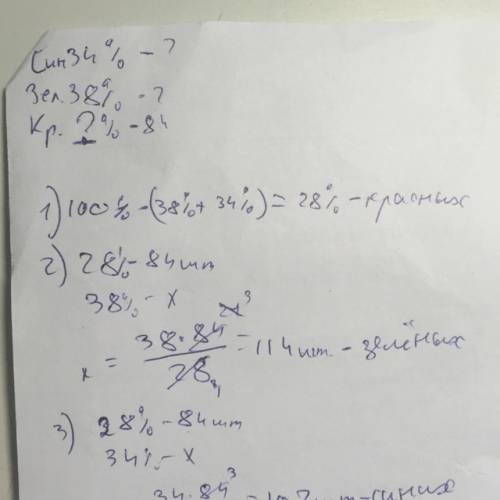 Син 34% - ?
Зел. 38% - ?
Кр. ?% - 84
1) 100% - (38% + 34%) = 28% - красных
2) 28% - 84 шт
38% - x
x = 38 · 84 / 28 = 114 шт. - зелёных
3) 28% - 84 шт
34% - x
34 · 84 3